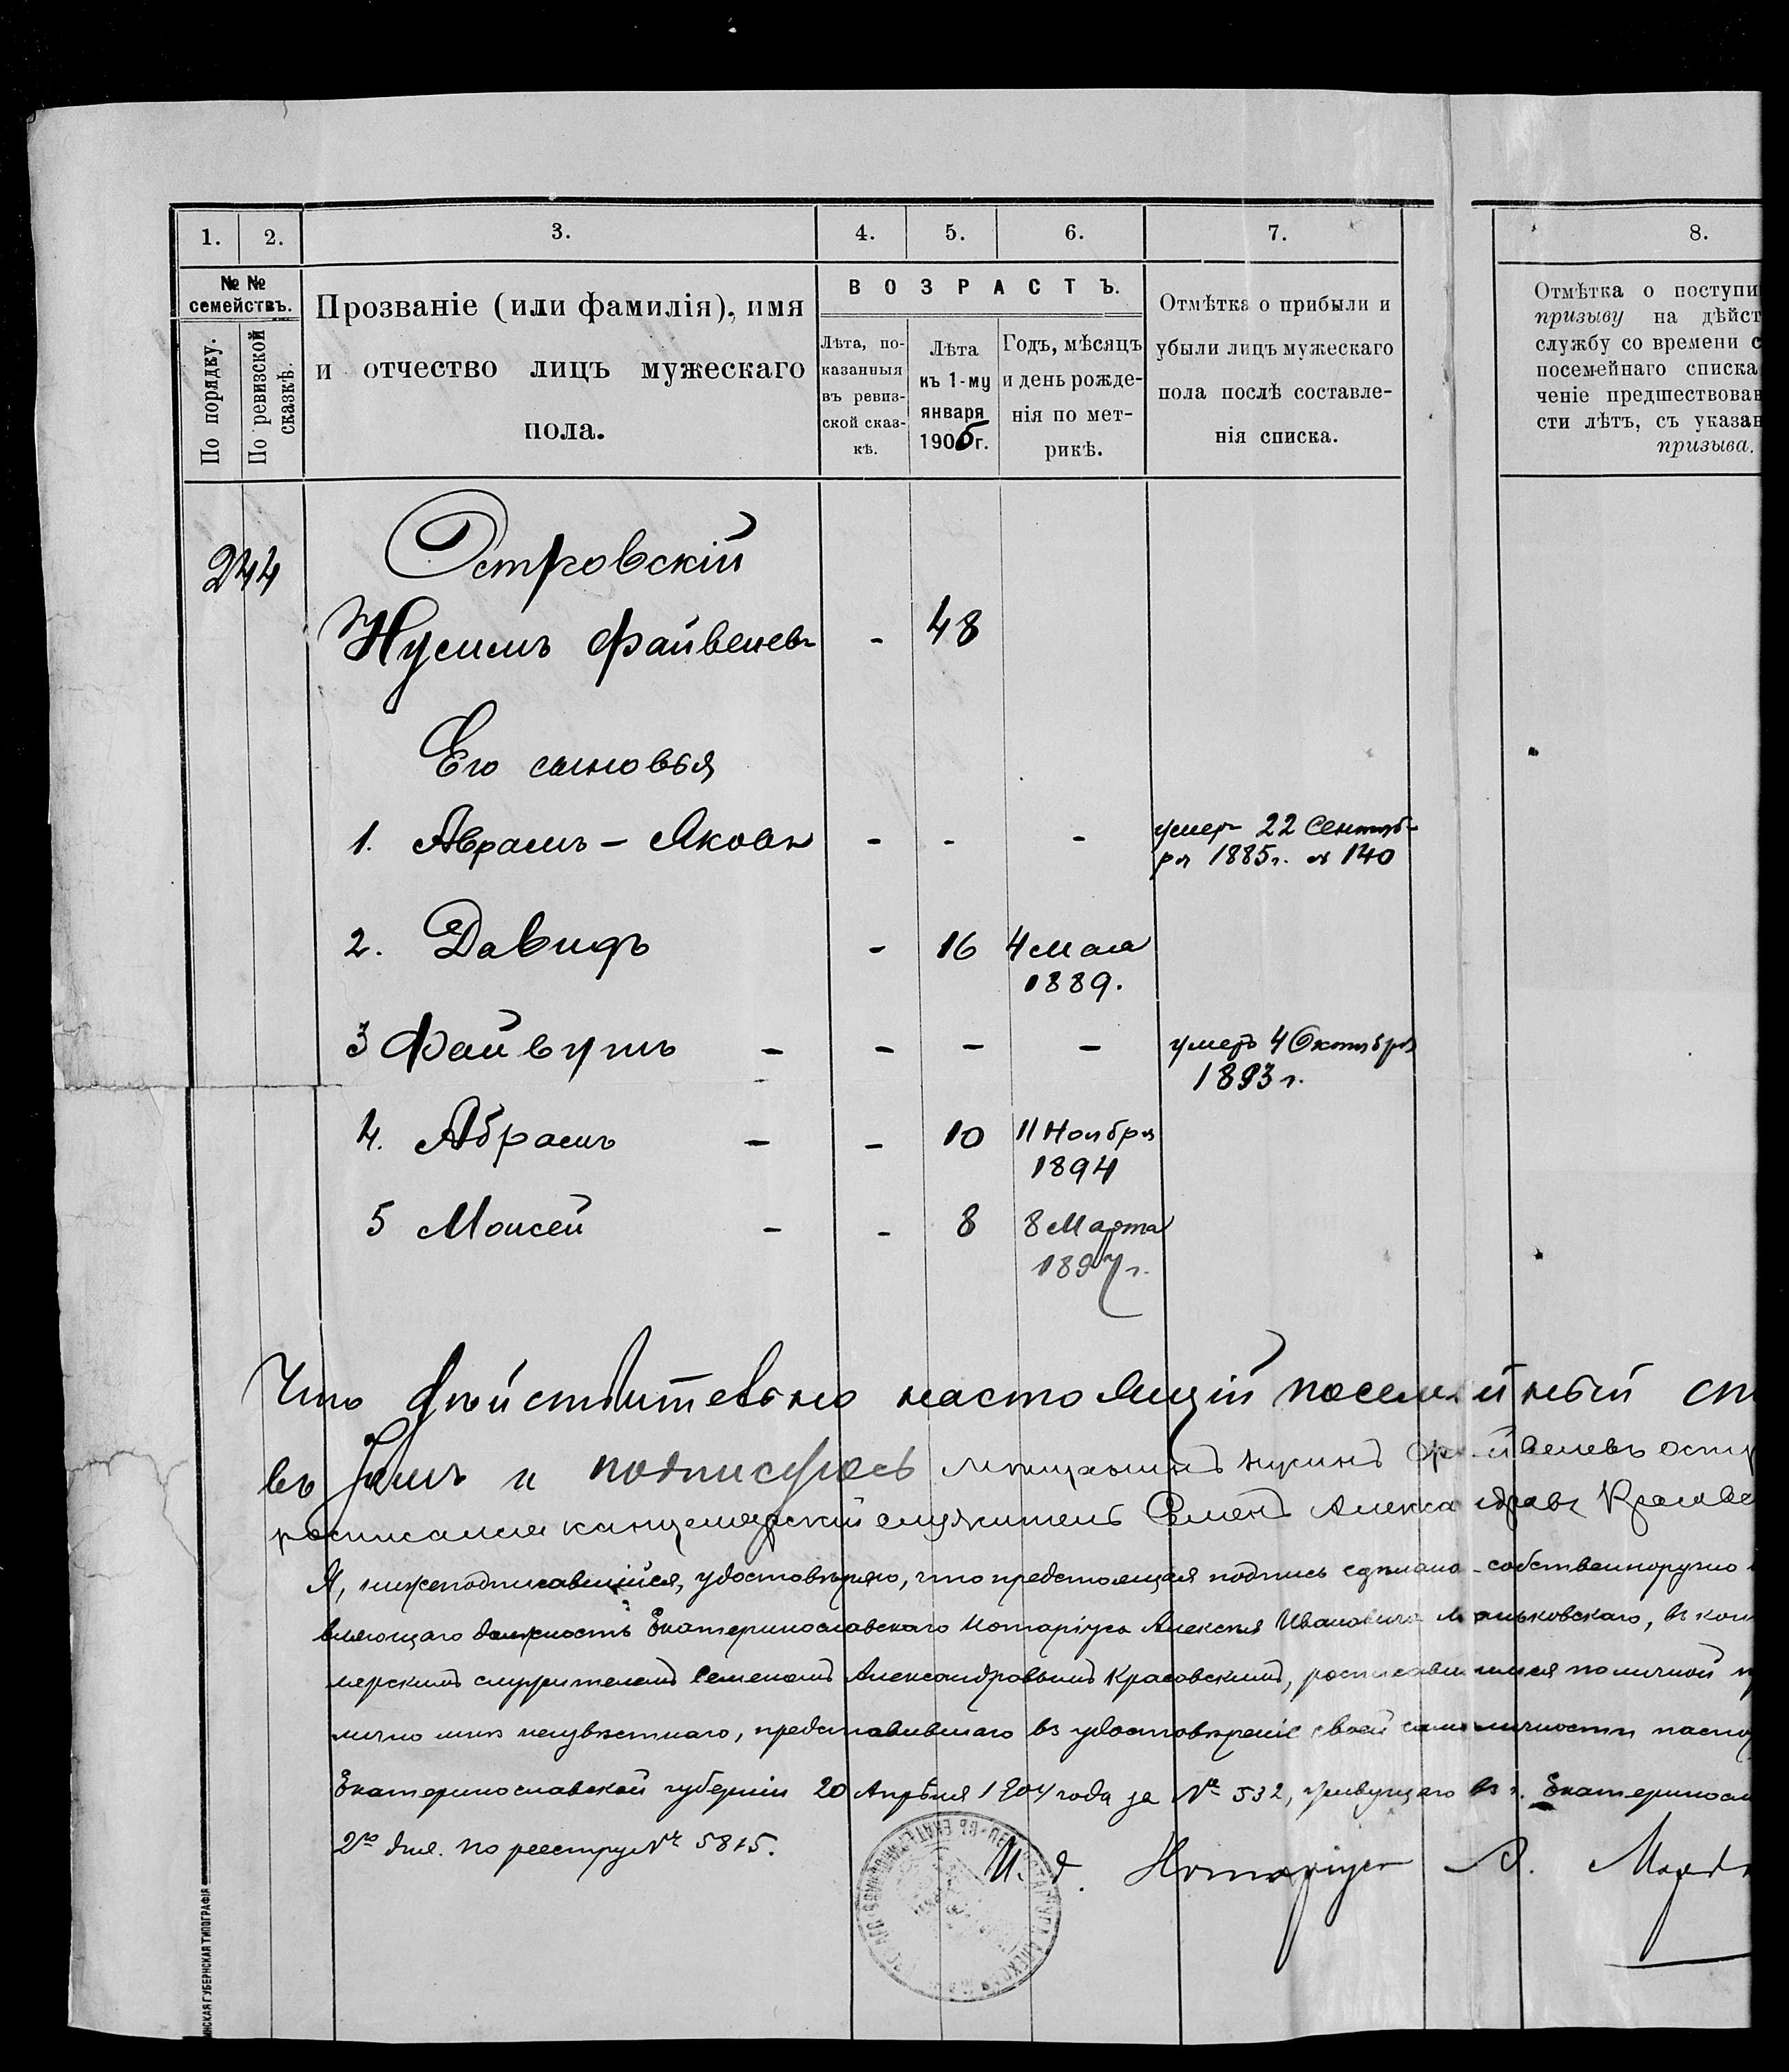 1. 2. 3. 4. 5. 6. 7. 8.
№ № семействъ.
По порядку.
По ревизской сказкѣ.
Прозваніе (или фамилія), имя
и отчество лицъ мужескаго
пола.
ВОЗРАСТЪ.
Лѣта, по-
казанныя
въ ревиз-
ской сказ-
кѣ.
Лѣта
къ 1-му
января
1905 г.
Годъ, мѣсяцъ
и день рожде-
нія по мет-
рикѣ.
Отмѣтка о прибыли и
убыли лицъ мужескаго
пола послѣ составле-
нія списка.
Отмѣтка о поступи
призыву на дѣйст
службу со времени с
посемейнаго списка
ченіе предшествован
сти лѣтъ, съ указан
призыва.
244
Островскій
Нусимъ Файвелевъ - 48
Его сыновья
1. Аврамъ - Яковъ - - - умеръ 22 Сентяб-
ря 1885 г. № 140
2. Давидъ - 16 4 Мая
1889.
3 Файвушъ - - - - умеръ 4 Октября
1893 г.
4. Абрамъ - - 10 11 Ноября
1894
5 Моисей - - 8 8 Марта
1897 г.
Что дѣйствительно настоящій посемейный сп
въ томъ и подписуюсь мѣщанинъ Нусинъ Файвелевъ Остр
росписался канцелярскій служитель Семенъ Александровъ
Я, нижеподписавшійся, удостовѣряю, что предстоящая подпись сдѣлана собственноручно
вляющаго должность Екатеринославскаго Нотаріуса Алексѣя Ивановича
лярскимъ служителемъ Семеномъ Александровымъ Красовскимъ, росписавшимся по личной
лично мнѣ неизвѣстнаго, представившаго въ удостовѣреніе своей самоличности паспо
Екатеринославской губерніи 20 Апрѣля 1904 года за № 532, живущаго въ г. Екатериносл
2го дня. По реестру № 5815.
И. д. Нотаріуса А.
НСКАЯ ГУБЕРНСКАЯ ТИПОГРАФІЯ